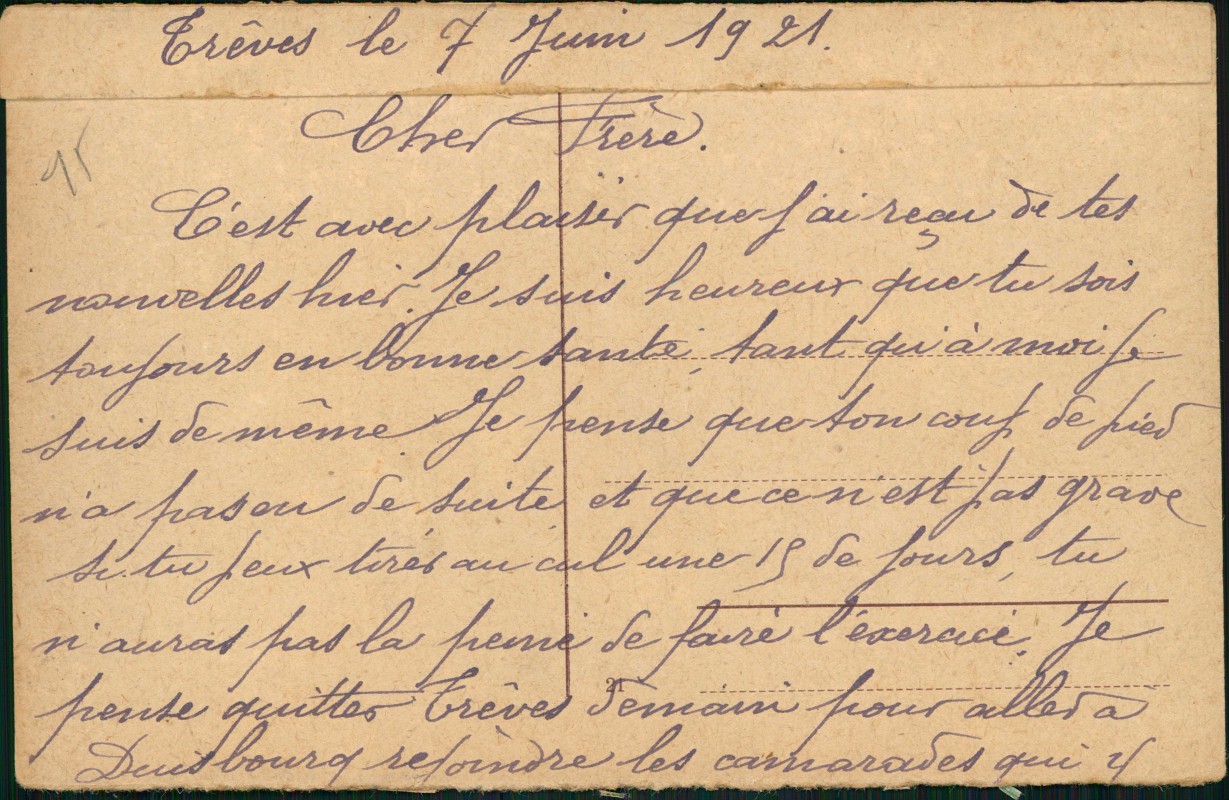 Trêves le 7 Juin 1921.
Cher Frère.
15
C'est avec plaisir que j'ai reçu de tes
nouvelles hier. Je suis heureux que tu sois
toujours en bonne santé, tant qu'à moi je
suis de même Je pense que ton coup de pied
n'a pas eu de suite et que ce n'est pas grave
si tu peux tirer au cul une 15 de jours, tu
n'auras pas la peine de faire l'exercice. Je
21
pense quitter Trêves demain pour aller a
Duisbourg rejoindre les camarades qui y